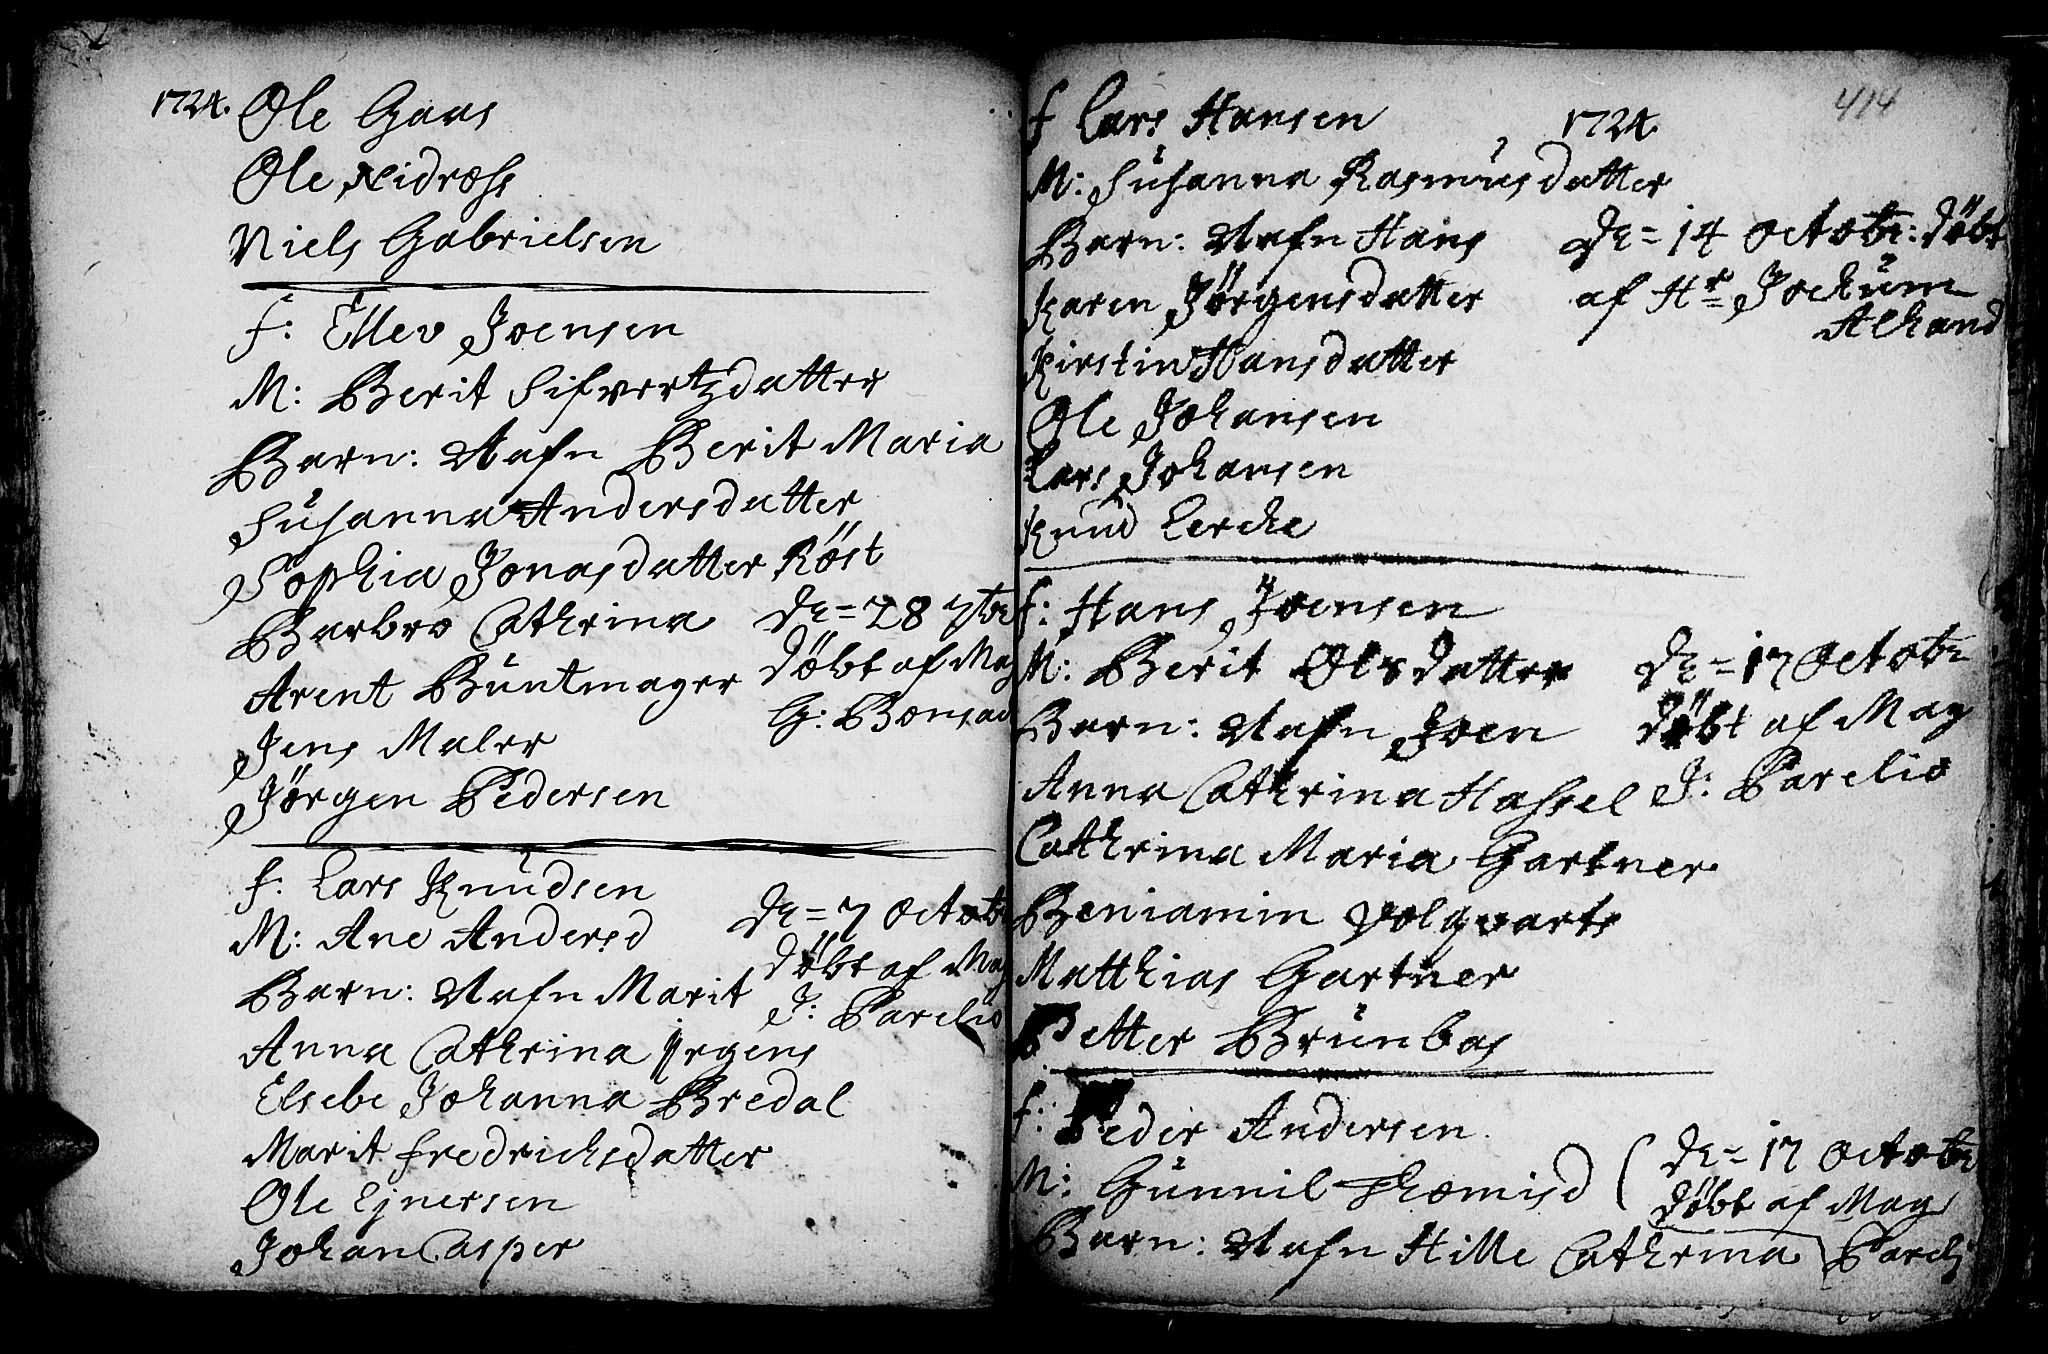 1724. Ole Gaas
Ole Nidroess
Niels Gabrielsen
f: Ellev Joensen
M: Berit Sifvertzdatter
Barn: Nafn Berit Maria
Susanna Andersdatter
Sophia Jonasdatter Röst
Barbro Cathrina
Arent Buntmager
Jens Maler
Jörgen Pedersen
De = 28 7br
döbt af Mag
G: Bonsac
f: Lars Knudsen
M: Ane Andersd
Barn: Nafn Marit
Anna Cathrina Jrgens
Elsebe Johanna Bredal
Marit fredrichsdatter
Ole Ejnersen
Johan Casper
De = 7 Octobr
döbt af Mag
J: Parelio
414
f Lars Hansen 1724.
M: Susanna Rasmusdatter
Barn: Nafn Hans
Karen Jörgensdatter
Kirstin Hansdatter
Ole Johansen
Lars Johansen
Knud Lerche
De = 14 Octobr: döbt
af Hr Jochum
f: Hans Joensen
M: Berit Olsdatter
Barn: Nafn Joen
Anna Cathrina Hassel
Cathrina Maria Gartner
Beniamin Volqvarts
Matthias Gartner
Petter Brünbas
De = 17 Octobr
döbt af Mag
J: Parelio
f: Peder Andersen
M: Gunnil Thomisd
Barn: Nafn Hille Cathrina
De = 17 Octobr
döbt af Mag
Parelj